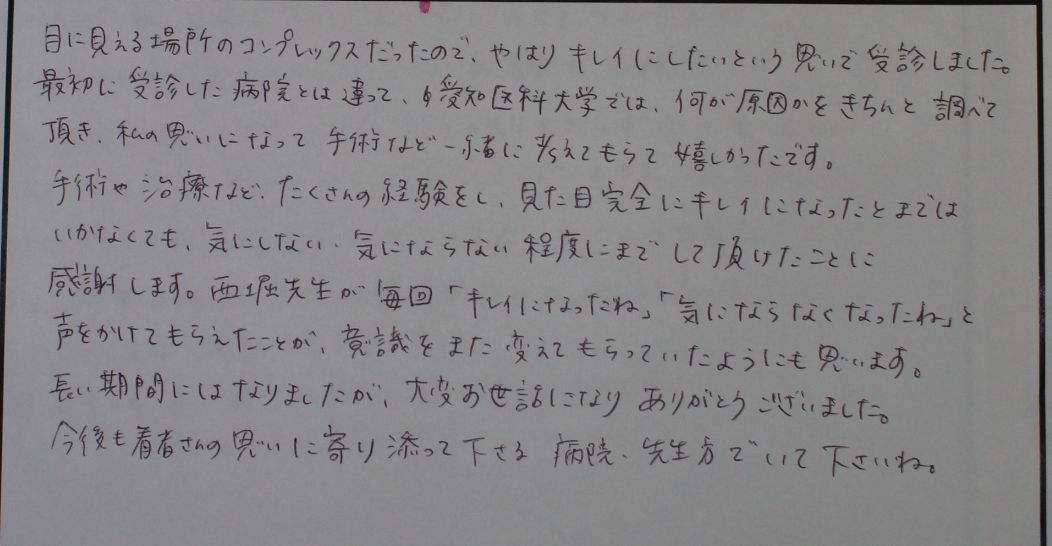 目に見える場所のコンプレックスだったので、やはりキレイにしたいという思いで受診しました。
最初に受診した病院とは違って、愛知医科大学では、何が原因かをきちんと調べて
頂き、私の思いになって手術など一緒に考えてもらって嬉しかったです。
手術や治療など、たくさんの経験をし、見た目完全にキレイになったとまでは
いかなくても、気にしない・気にならない程度にまでして頂けたことに
感謝します。西堀先生が毎回「キレイになったね」「気にならなくなったね」と
声をかけてもらえたことが、意識をまた変えてもらっていたようにも思います。
長い期間にはなりましたが、大変お世話になりありがとうございました。
今後も着者さんの思いに寄り添って下さる病院、先生方でいて下さいね。